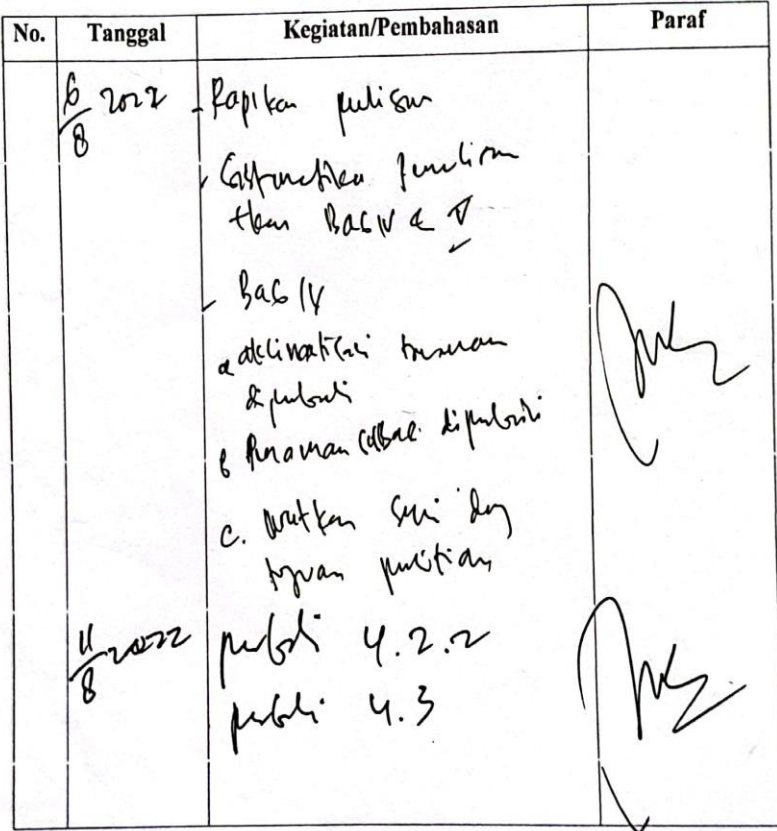 No. Tanggal Kegiatan/Pembahasan Paraf
6/8 2022 - Rapikan penulisan
- Sistematika penulisan
BAB IV & V
- BAB IV
a
diperbaiki
b diperbaiki
c. urutkan sesuai dg
tujuan penelitian
11/8 2022 perbaiki 4.2.2
perbaiki 4.3